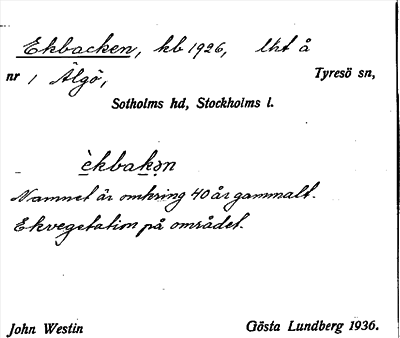 Ekbacken, kb 1926, lht å
nr 1 Älgö, Tyresö sn,
Sotholms hd, Stockholms l.
èkbakən
Namnet är omkring 40 år gammalt.
Ekvegetation på området.
John Westin Gösta Lundberg 1936.